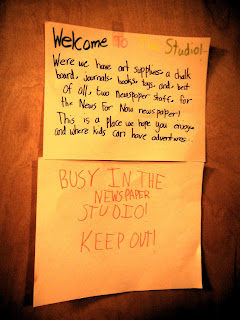 Welcome To
Studio!
Were we have art supplies, a chalk
board, journals, books, toys, and, best
of all, two newspaper staff, for
the News For Now newspaper!
This is a place we hope you enjoy
and where kids can have adventures...
BUSY IN THE
NEWSPAPER
STUDIO!
KEEP OUT!